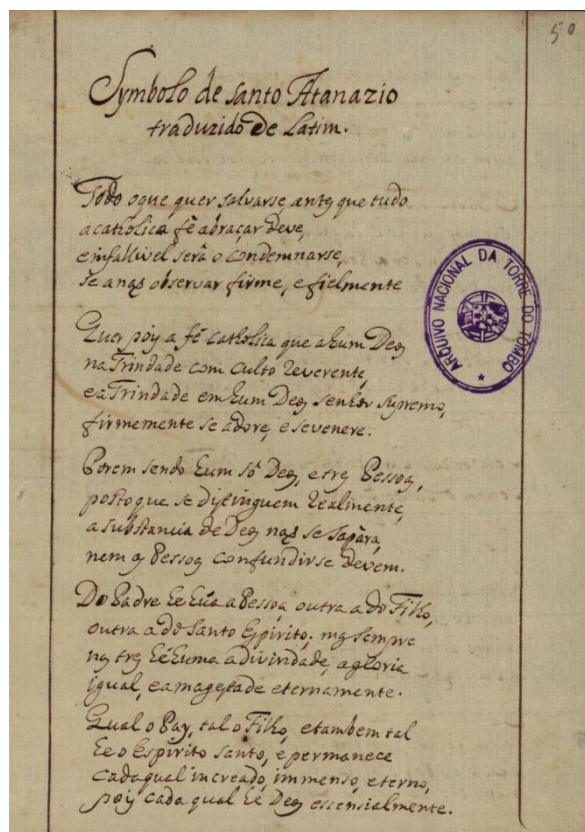 50
Symbolo de santo Atanazio
traduzido de Latim.
Todo o que quer salvarse, antes que tudo
a catholica fê abraçar deve,
e infallivel serâ o condemnarse,
se a naõ observar firme, e fielmente
Quer pois a fê catholica que a hum Deos
na Trindade com culto reverente,
e a Trindade em hum Deos senhor supremo,
firmemente se adore, e se venere.
Porem sendo hum sô Deos, e tres Pessoas,
posto que se distinguem realmente,
a substancia de Deos naõ se sapàra,
nem as Pessoas confundirse devem.
Do Padre he hũa a Pessoa, outra a do Filho,
outra a do Santo Espirito; mas sempre
nas tres he huma a divindade, a gloria
igual, e a magestade eternamente.
Qual o Pay, tal o Filho, e tambem tal
he o Espirito santo, e permanece
cada qual increado, immenso, eterno,
pois cada qual he Deos essensialmente.
ARQUIVO NACIONAL DA TORRE DO TOMBO